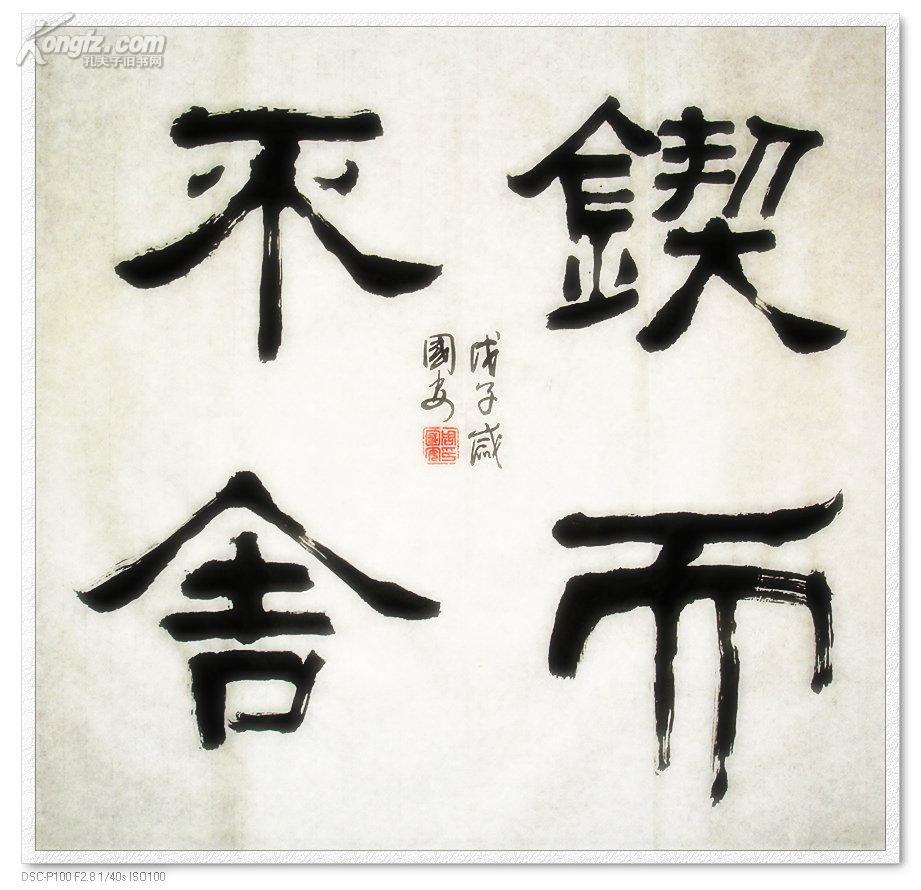 锲而
不舍
戊子歲
國安
Kongfz.com
孔夫子旧书网
DSC-P100 F2.8 1/40s ISO100